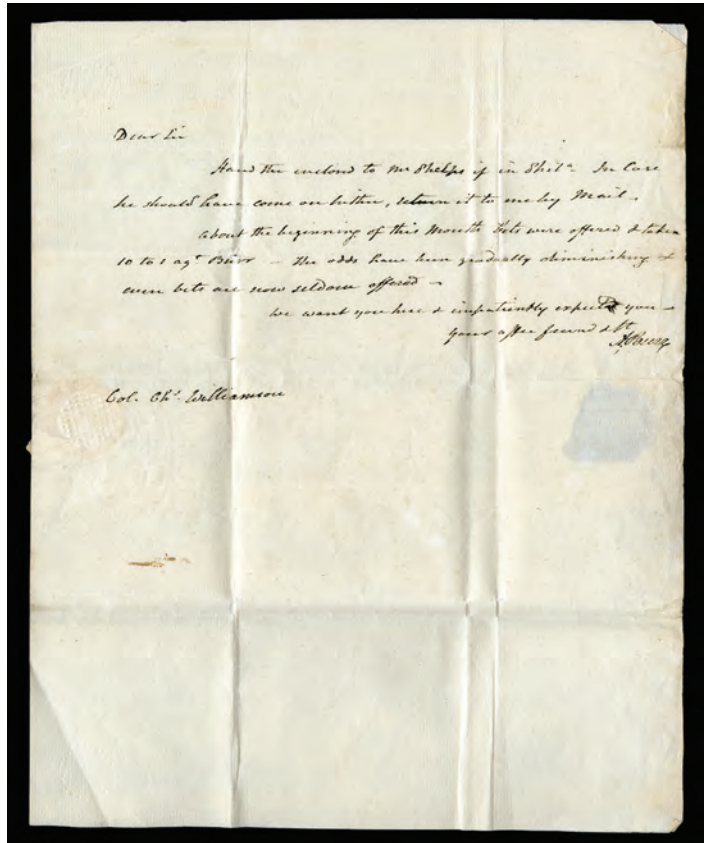 Dear Sir
Hand the enclosed to Mr Phelps if in Phila. In Case
he should have come on hither, return it to me by Mail.
About the beginning of this Month bets were offered & taken
10 to 1 agt. Burr – The odds have been gradually diminishing &
even bets are now seldom offered –
We want you here & impatiently expect you –
Your affec friend & St.
A. Burr
Col. Chs. Williamson